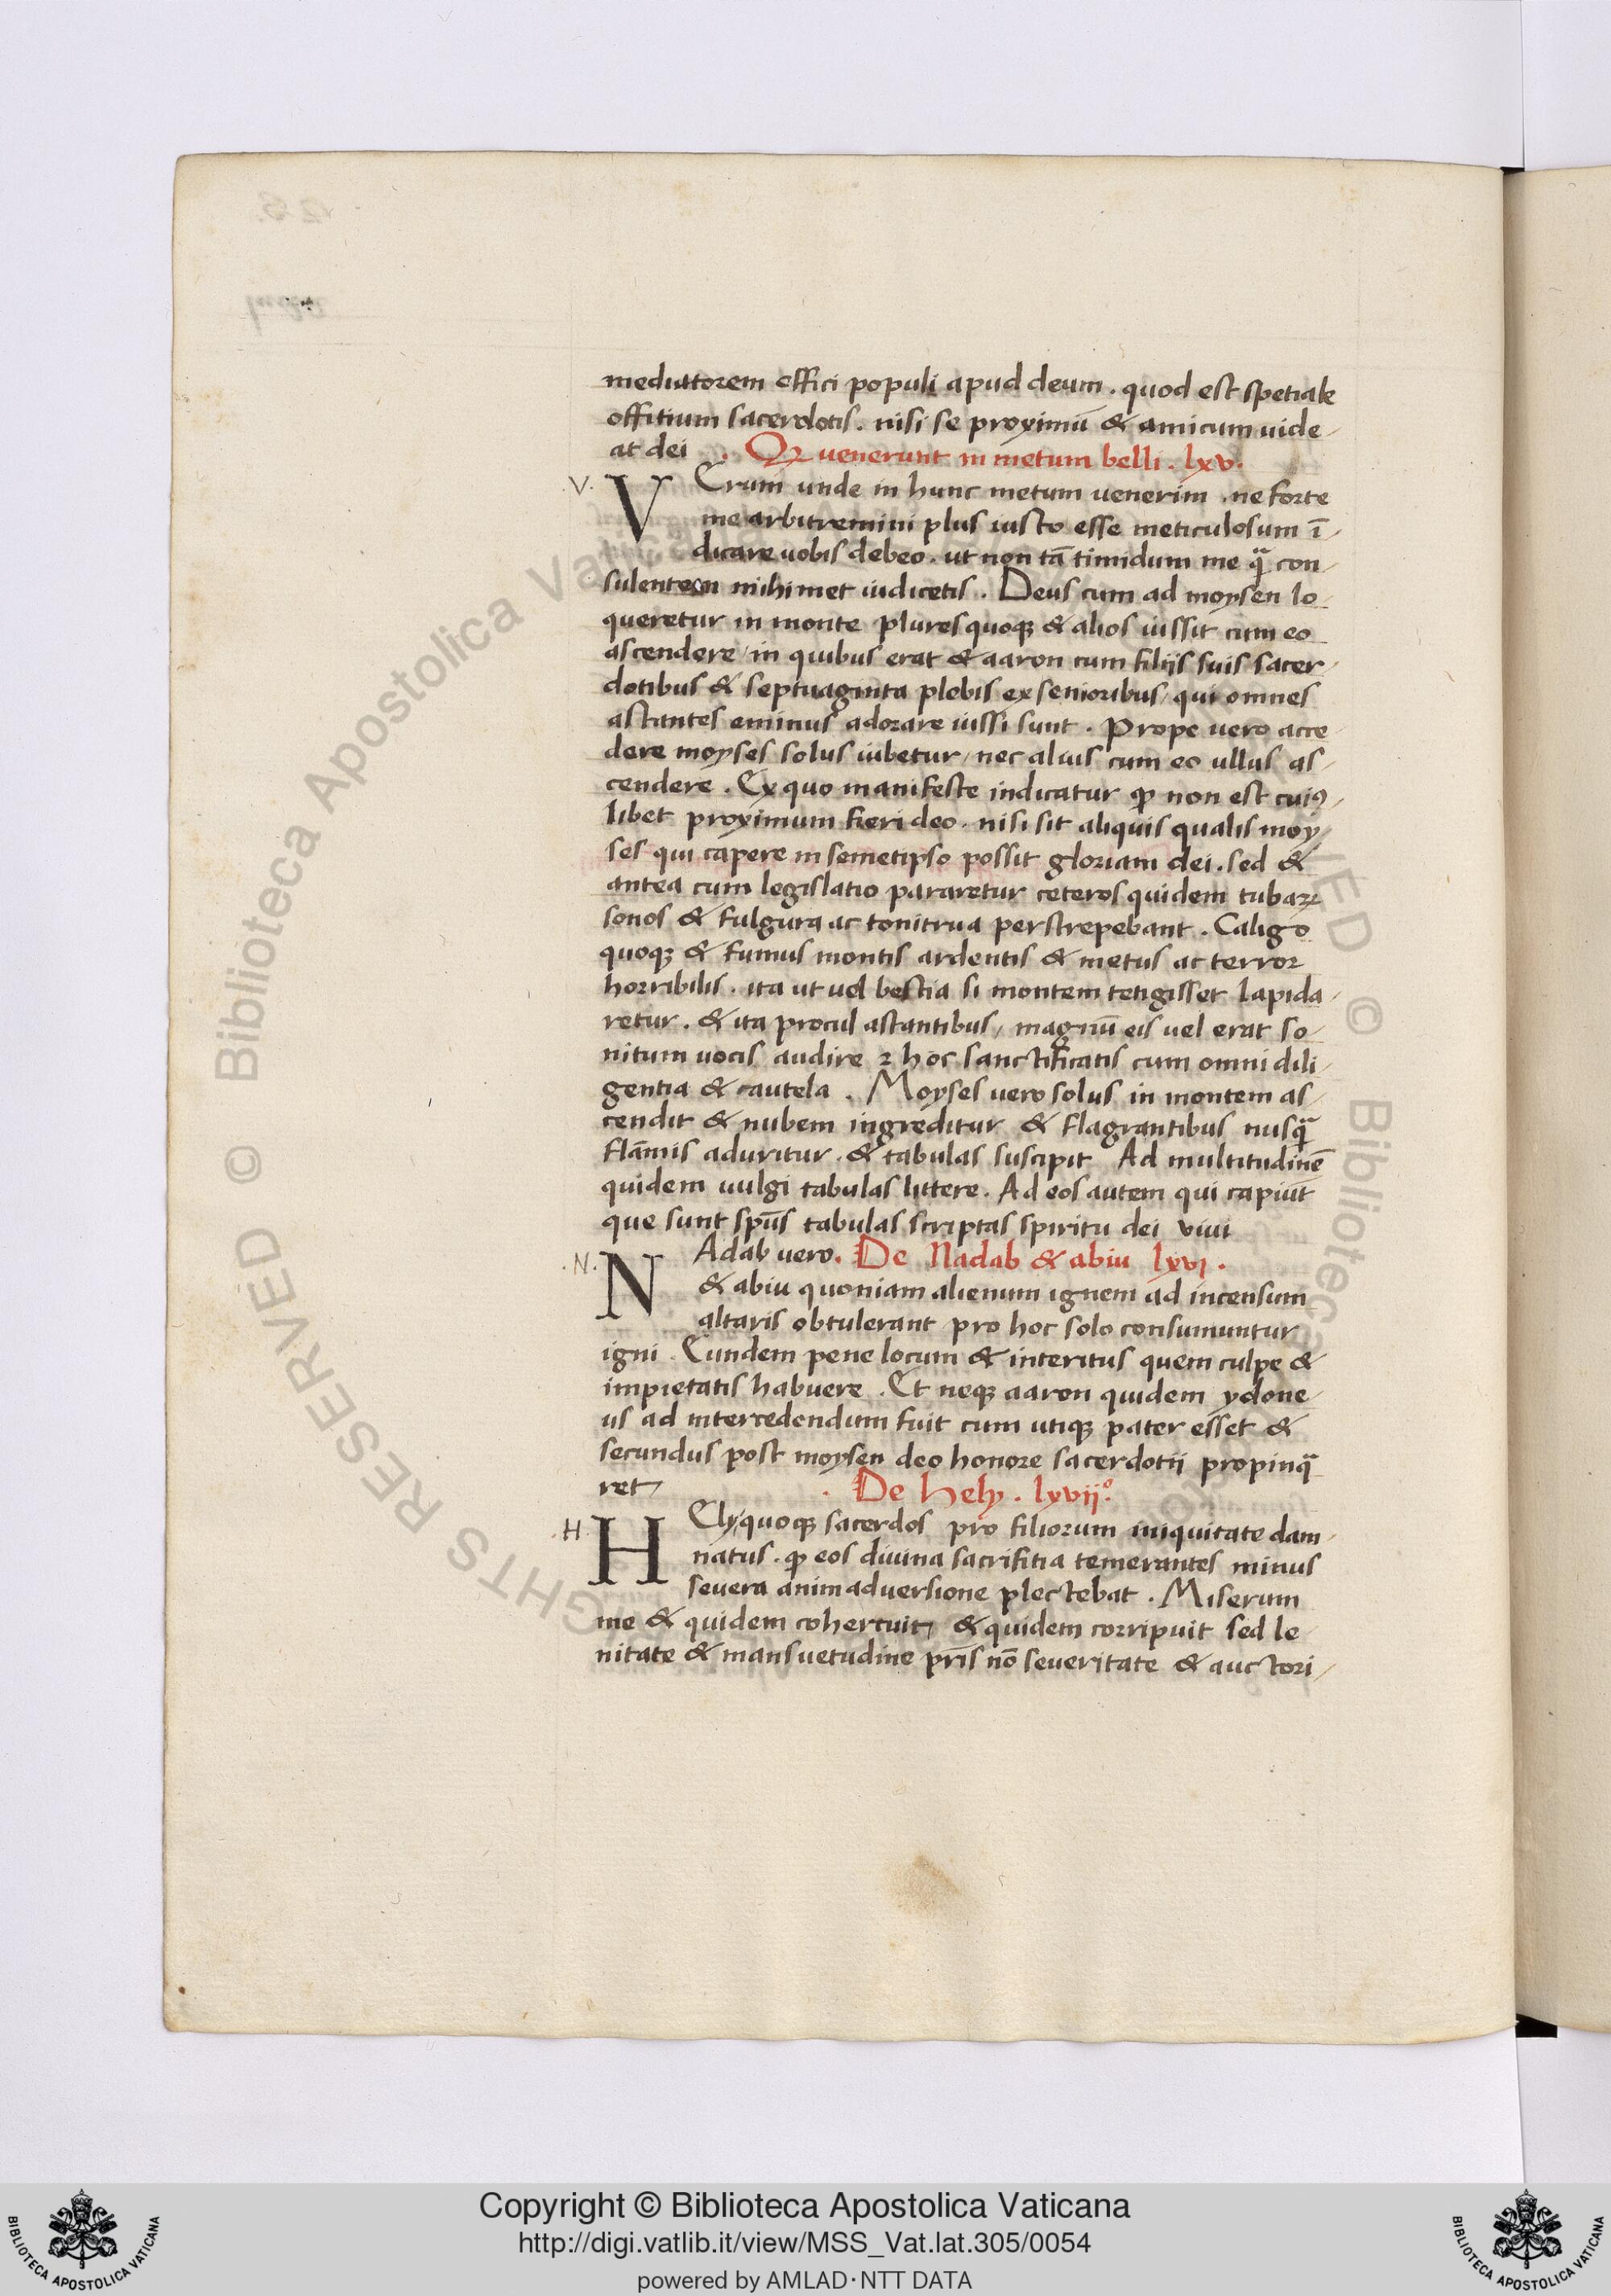 mediatorem offici populi apud deum . quod est spetiale
offitium sacerdotis . nisi se proximū & amicum uide
at dei . Qꝫ uenerunt in metum belli . lxv .
.V. VErum unde in hunc metum uenerim . ne forte
me arbitremini plus iusto esse meticulosum ī
dicare uobis debeo . ut non tā timidum me qᷓ con
sulentem mihimet iudicetis . Deus cum ad moysen lo
queretur in monte plures quoqꝫ & alios iussit cum eo
ascendere / in quibus erat & aaron cum filijs suis sacer
dotibus & septuaginta plebis ex senioribus / qui omnes
astantes eminus adorare iussi sunt . Prope uero acce
dere moyses solus iubetur / nec alius cum eo ullus as
cendere . Ex quo manifeste indicatur ꝙ non est cuiꝰ
libet proximum fieri deo . nisi sit aliquis qualis moy
ses qui capere in semetipso possit gloriam dei . sed &
antea cum legislatio pararetur ceteros quidem tubaꝝ
sonos & fulgura ac tonitrua perstrepebant . Caligo
quoqꝫ & fumus montis ardentis & metus ac terror
horribilis . ita ut uel bestia si montem tetigisset lapida
retur . & ita procul astantibus / magnū eis uel erat so
nitum uocis audire ⁊ hoc sanctificatis cum omni dili
gentia & cautela . Moyses uero solus in montem as
cendit & nubem ingreditur & flagrantibus nusqᷓ
flāmis aduritur . & tabulas suscipit Ad multitudinē
quidem uulgi tabulas littere . Ad eos autem qui capiūt
que sunt spūs tabulas scriptas spiritu dei viui
.N. NAdab vero . De Nadab & abiu lxvj .
& abiu quoniam alienum ignem ad incensum
altaris obtulerant pro hoc solo consumuntur
igni . Eundem pene locum & interitus quem culpe &
impietatis habuere . Et neqꝫ aaron quidem ydone
us ad intercedendum fuit cum utiqꝫ pater esset &
secundus post moysen deo honore sacerdotii propinqᷓ
ret . De hely . lxvijº.
.H HEly quoqꝫ sacerdos pro filiorum iniquitate dam
natus . ꝙ eos diuina sacrifitia temerantes minus
seuera animaduersione plectebat . Miserum
me & quidem cohercuit & quidem corripuit sed le
nitate & mansuetudine pr̄is nō seueritate & auctori
Copyright © Biblioteca Apostolica Vaticana
http://digi.vatlib.it/view/MSS_Vat.lat.305/0054
powered by AMLAD·NTT DATA
BIBLIOTECA APOSTOLICA VATICANA
BIBLIOTECA APOSTOLICA VATICANA